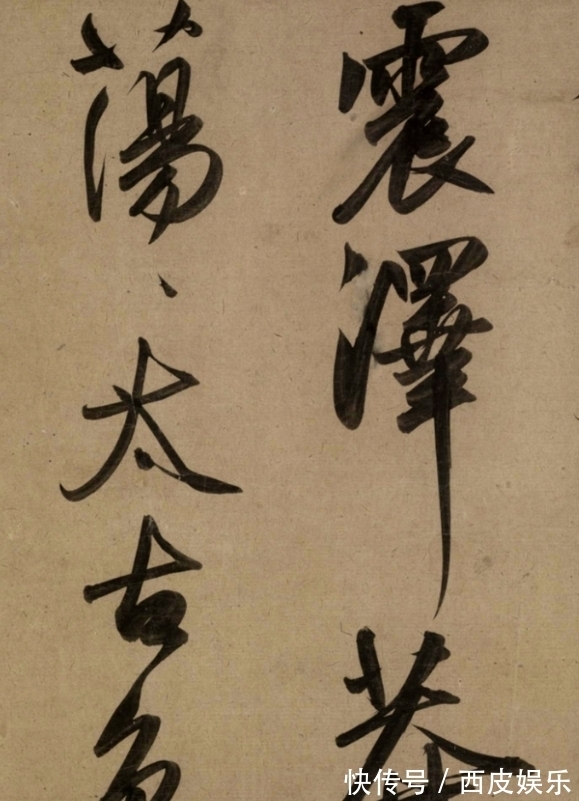 震澤
蕩〻太古
快传号/西皮娱乐